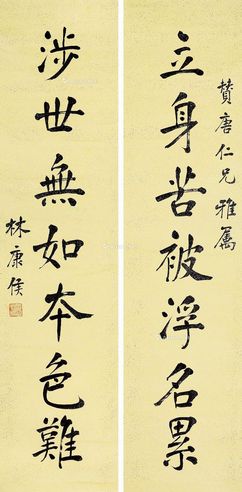 贊唐仁兄雅屬
立身苦被浮名累
涉世無如本色難
林康侯